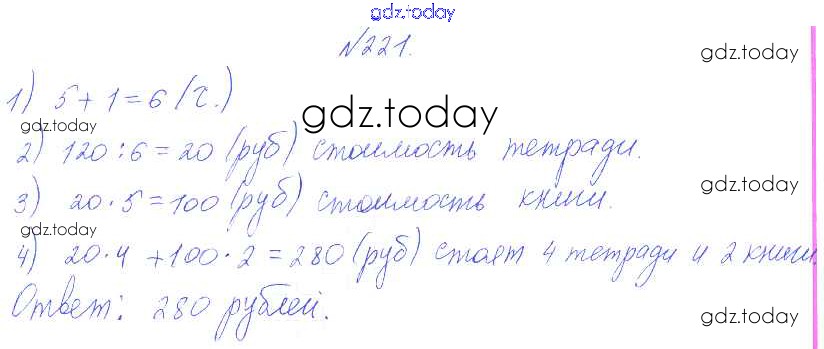 gdz.today
№221.
gdz.today
1) 5+1=6 (ч.)
gdz.today
gdz.today
2) 120:6=20 (руб) стоимость тетради.
3) 20·5=100 (руб) стоимость книги.
gdz.today
gdz.today
4) 20·4+100·2=280 (руб) стоят 4 тетради и 2 книги.
Ответ: 280 рублей.
gdz.today